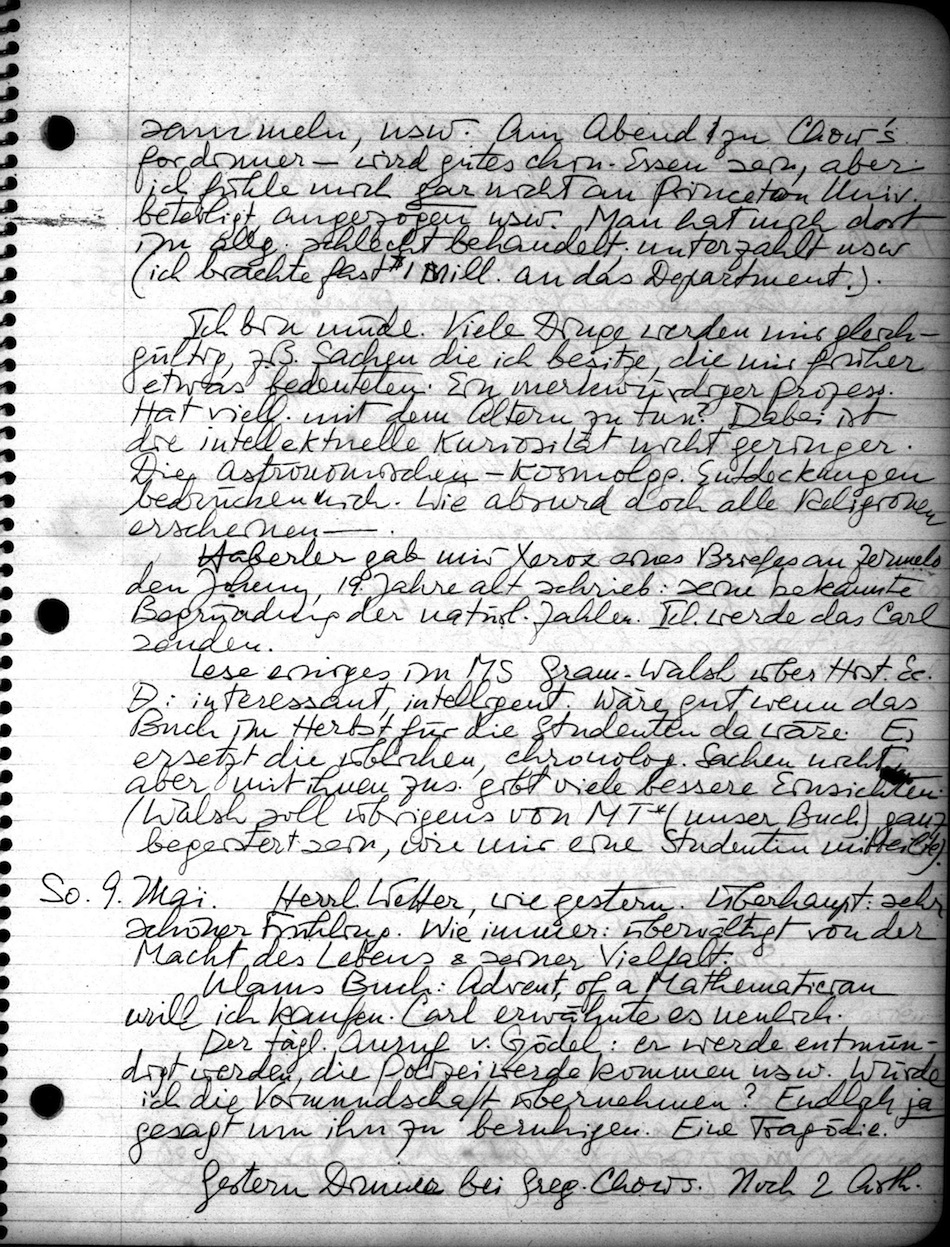 sammeln, usw. Am Abend zu Chow's
for dinner — wird gutes chin. Essen sein, aber
ich fühle mich gar nicht an Princeton Univ.
beteiligt, angezogen usw. Man hat mich dort
im allg. schlecht behandelt, unterzahlt usw
(ich brachte fast $1 Mill. an das Department.).
Ich bin müde. Viele Dinge werden mir gleich-
gültig, z.B. Sachen die ich besitze, die mir früher
etwas bedeuteten. Ein merkwürdiger Prozess.
Hat viell. mit dem Altern zu tun? Dabei ist
die intellektuelle Kuriosität nicht geringer.
Die astronomischen - Kosmolog. Entdeckungen
mich. Wie absurd doch alle Religionen
erscheinen — .
Haberler gab mir Xerox eines Briefes an Zermelo
den Johnny, 19 Jahre alt schrieb: seine bekannte
Begründung der natürl. Zahlen. Ich werde das Carl
senden.
Lese einiges im MS Gram-Walsh über Hist. Ec.
D: interessant, intelligent. Wäre gut wenn das
Buch im Herbst für die Studenten da wäre. Es
ersetzt die üblichen, chronolog. Sachen nicht,
aber mit ihnen zus. gibt viele bessere Einsichten.
(Walsh soll übrigens von MT* (unser Buch) ganz
begeistert sein, wie mir eine Studentin mitteilte).
So. 9. Mai. Herrl. Wetter, wie gestern. Überhaupt: sehr
schöner Frühling. Wie immer: überwältigt von der
Macht des Lebens & seiner Vielfalt.
Ulams Buch: Advent. of a Mathematician
will ich kaufen. Carl erwähnte es neulich.
Der tägl. Anruf v. Gödel: er werde entmün-
digt werden, die Polizei werde kommen usw. Würde
ich die Vormundschaft übernehmen? Endlich ja
gesagt um ihn zu beruhigen. Eine Tragödie.
Gestern Dinner bei Greg. Chows. Noch 2